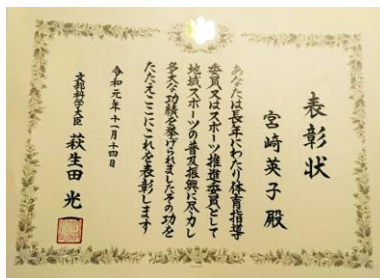 表彰状
宮崎英子殿
あなたは長年にわたり体育指導
委員又はスポーツ推進委員として
地域スポーツの普及振興に尽力し
多大な功績を挙げられましたその功を
たたえここにこれを表彰します
令和元年十一月十四日
文部科学大臣 萩生田光